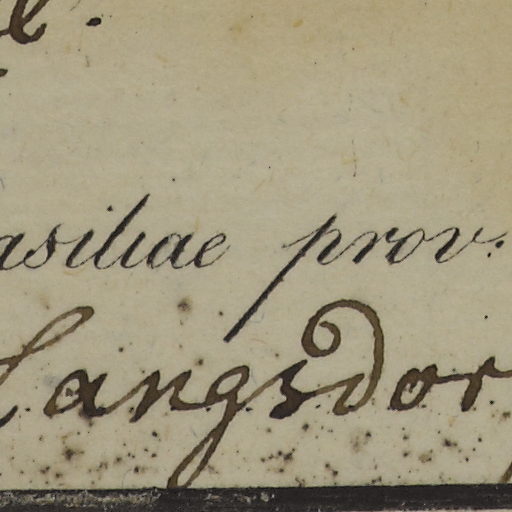 asiliae prov.
Langsdor